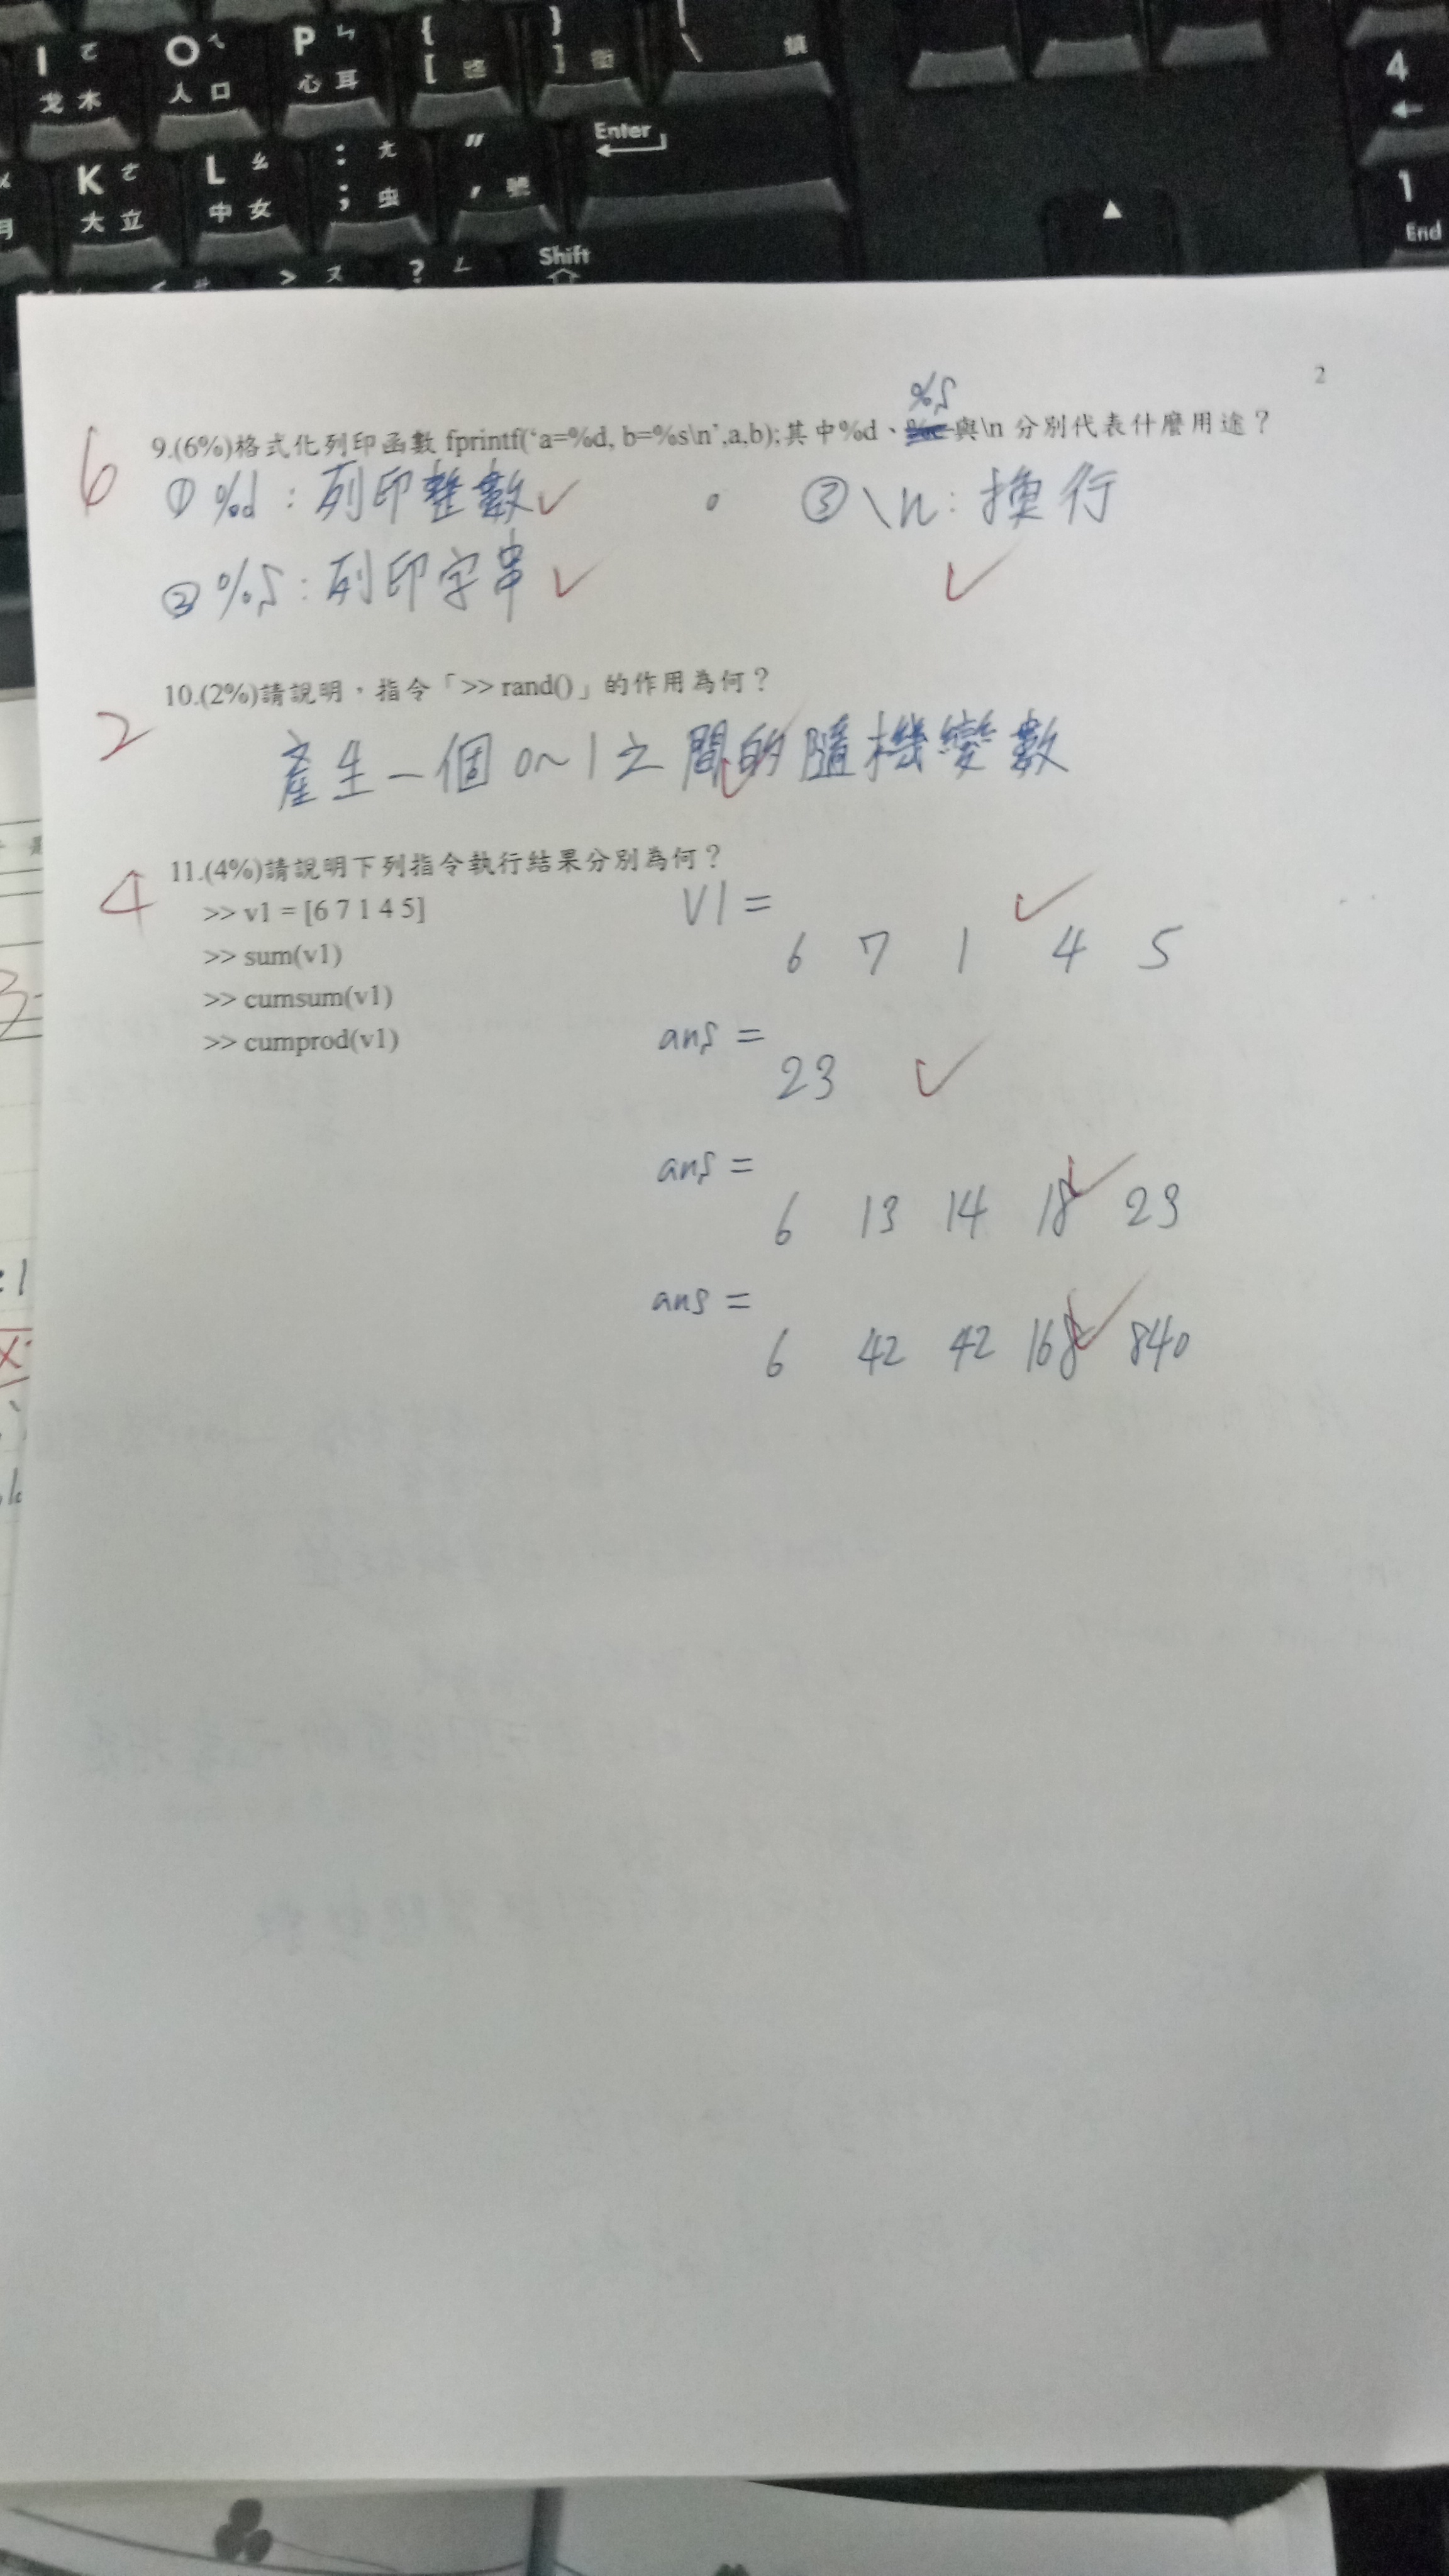 I ㄛ 戈 木
O ㄟ 人 口
P ㄣ 心 耳
{ [
} ]
\
4 ←
K ㄜ 大 立
L ㄠ 中 女
: ㄤ ; 虫
" ,
Enter
1 End
> ㄡ
? ㄥ
Shift
2
%s
9.(6%)格式化列印函數 fprintf(‘a=%d, b=%s\n’,a,b);其中%d、與\n 分別代表什麼用途？
6
① %d : 列印整數 ③ \n : 換行
② %s : 列印字串
10.(2%)請說明，指令「>> rand()」的作用為何？
2
產生一個 0~1 之間的隨機變數
11.(4%)請說明下列指令執行結果分別為何？
4
>> v1 = [6 7 1 4 5]
>> sum(v1)
>> cumsum(v1)
>> cumprod(v1)
V1 =
6 7 1 4 5
ans =
23
ans =
6 13 14 18 23
ans =
6 42 42 168 840